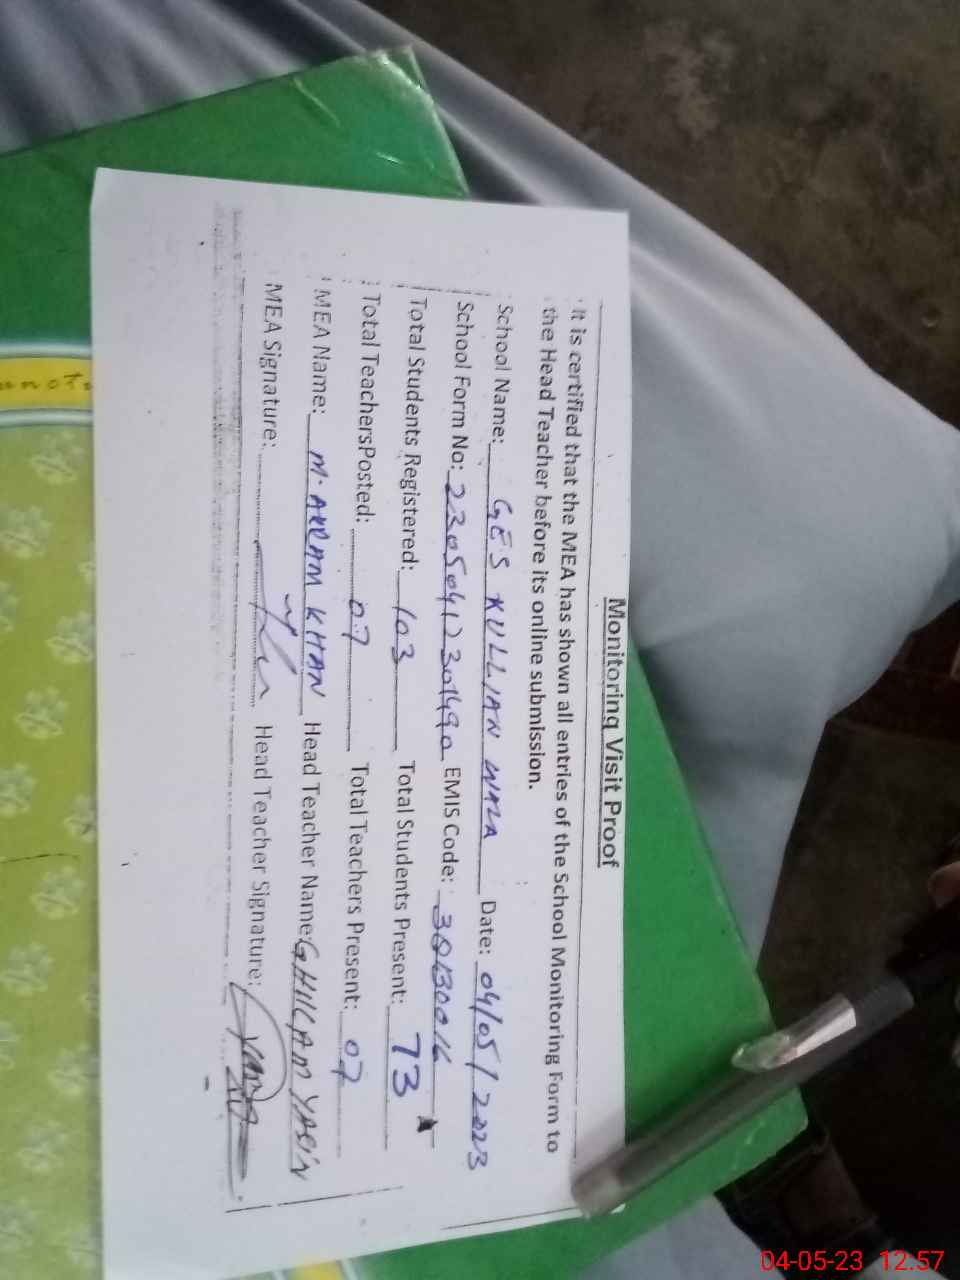 Monitoring Visit Proof
It is certified that the MEA has shown all entries of the School Monitoring Form to
the Head Teacher before its online submission.
School Name: GES KULLIAN WALA Date: 04/05/2023
School Form No: EMIS Code:
Total Students Registered: 103 Total Students Present: 73
Total TeachersPosted: 07 Total Teachers Present: 07
MEA Name: M. AKRAM KHAN Head Teacher Name: GHULAM YASIN
MEA Signature: Head Teacher Signature:
04-05-23 12.57